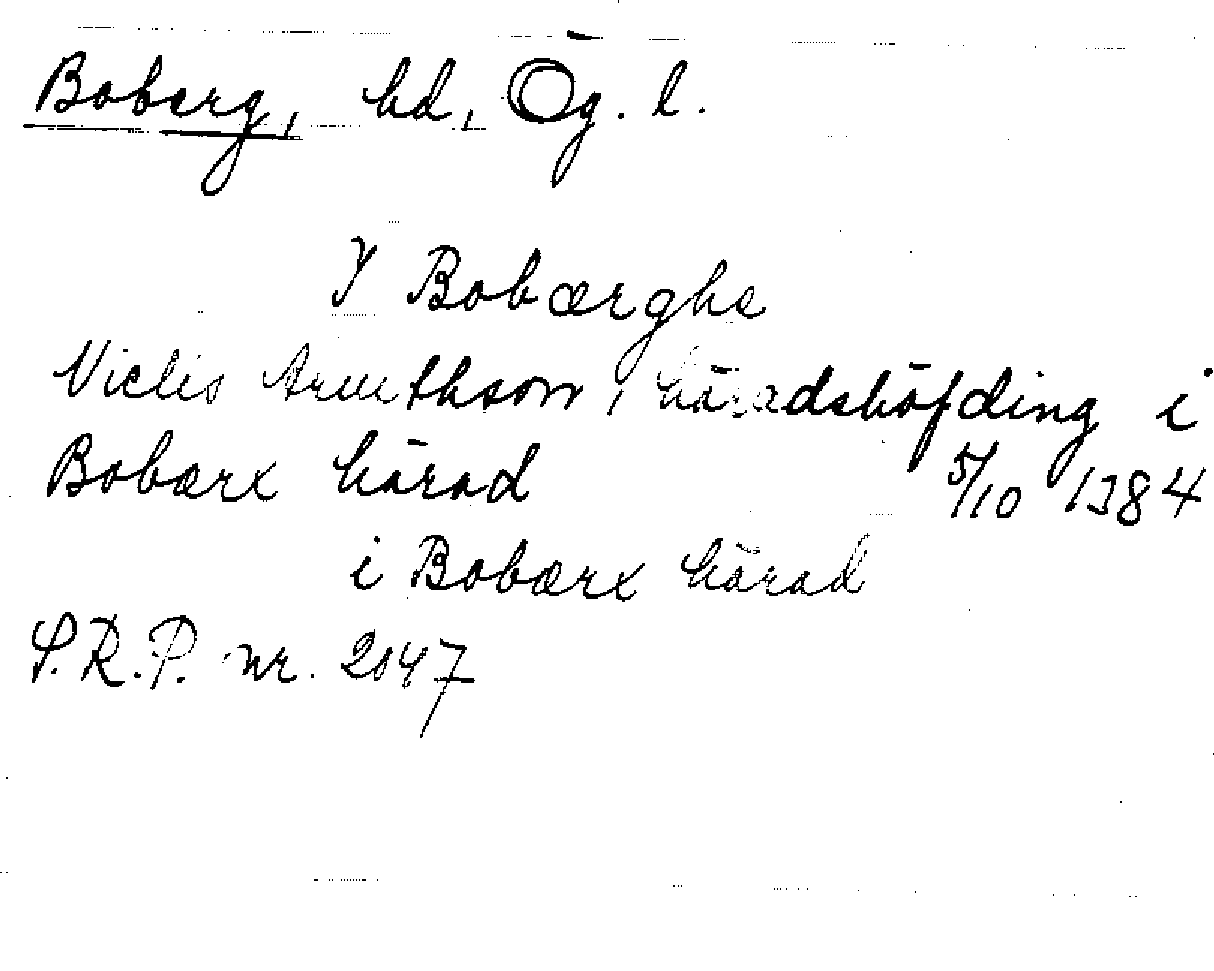 Boberg, hd, Ög. l.
J Bobærghe
Niclis Armthson, häradshöfding i
Bobærx härad 5/10 1384
i Bobærx härad
S.R.P. nr. 2047